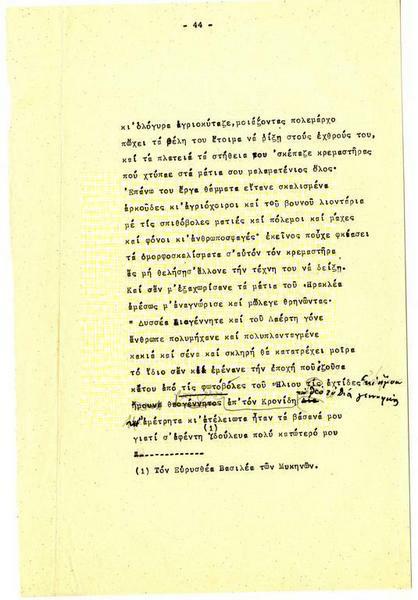 - 44 -
κι'ὁλόγυρα ἀγριοκύταζε,μοιάζοντας πολεμάρχο
πὤχει τά βέλη του ἕτοιμα νά ρίξη στούς ἐχθρούς του,
καί τά πλατειά τά στήθεια του σκέπαζε κρεμαστῆρας
πού χτύπαε στά μάτια σου μαλαματένιος ὅλος·
Ἐπάνω του ἔργα θάμματα εἴτανε σκαλισμένα
ἀρκοῦδες κι'ἀγριόχοιροι καί τοῦ βουνοῦ λιοντάρια
μέ τίς σπιθόβολες ματιές καί πόλεμοι καί μάχες
καί φόνοι κι'ἀνθρωποσφαγές· ἐκεῖνος ποὖχε φκιάσει
τά ὀμορφοσκαλίσματα σ'αὐτόν τόν κρεμαστῆρα
ἄς μή θελήση σ'ἄλλονε τήν τέχνη του νά δείξη.
Καί σάν μ'ἐξαχωρίσανε τά μάτια τοῦ Ἡρακλέα
ἀμέσως μ'ἀναγνώρισε καί μὄλεγε θρηνῶντας.
" Δυσσέα Διογέννητε καί τοῦ Λαέρτη γόνε
ἄνθρωπε πολυμήχανε καί πολυπλανταγμένε
κακιά καί σένα καί σκληρή θά κατατρέχει μοῖρα
τό ἴδιο σάν καί ἐμένανε τήν ἐποχή πού ζοῦσα
κάτου ἀπό τίς φωτοβόλες τοῦ Ἥλιου τίς ἀχτίδες
ἤμουνα θεογέννητος ἀπ'τόν Κρονίδη Δία
ἀμέτρητα κι'ἀτέλειωτα ἦταν τά βάσανά μου
γιατί σ'ἀφέντη (1) δούλευα πολύ κατώτερό μου
(1) Τόν Εὐρυσθέα Βασιλέα τῶν Μυκηνῶν.